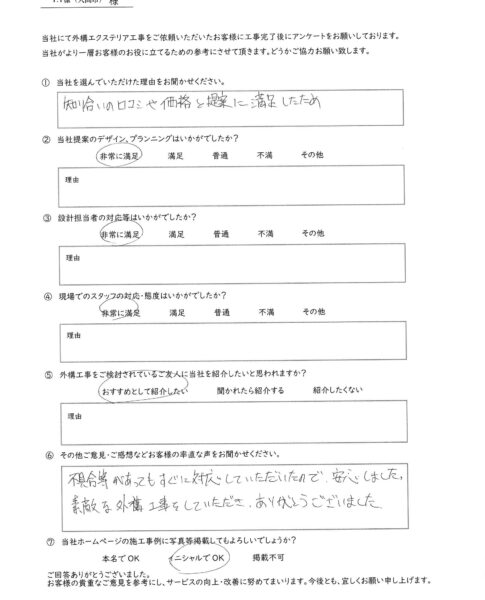 様
当社にて外構エクステリア工事をご依頼いただいたお客様に工事完了後にアンケートをお願いしております。
当社がより一層お客様のお役に立てるための参考にさせて頂きます。どうかご協力お願い致します。
① 当社を選んでいただけた理由をお聞かせください。
知り合いの口コミや価格と提案に満足したため
② 当社提案のデザイン、プランニングはいかがでしたか?
非常に満足 満足 普通 不満 その他
理由
③ 設計担当者の対応等はいかがでしたか?
非常に満足 満足 普通 不満 その他
理由
④ 現場でのスタッフの対応・態度はいかがでしたか?
非常に満足 満足 普通 不満 その他
理由
⑤ 外構工事をご検討されているご友人に当社を紹介したいと思われますか?
おすすめとして紹介したい 聞かれたら紹介する 紹介したくない
理由
⑥ その他ご意見・ご感想などお客様の率直な声をお聞かせください。
不具合等があってもすぐに対応していただいたので、安心しました。
素敵な外構工事をしていただき、ありがとうございました
⑦ 当社ホームページの施工事例に写真等掲載してもよろしいでしょうか?
本名でOK イニシャルでOK 掲載不可
ご回答ありがとうございました。
お客様の貴重なご意見を参考にし、サービスの向上・改善に努めてまいります。今後とも、宜しくお願い申し上げます。